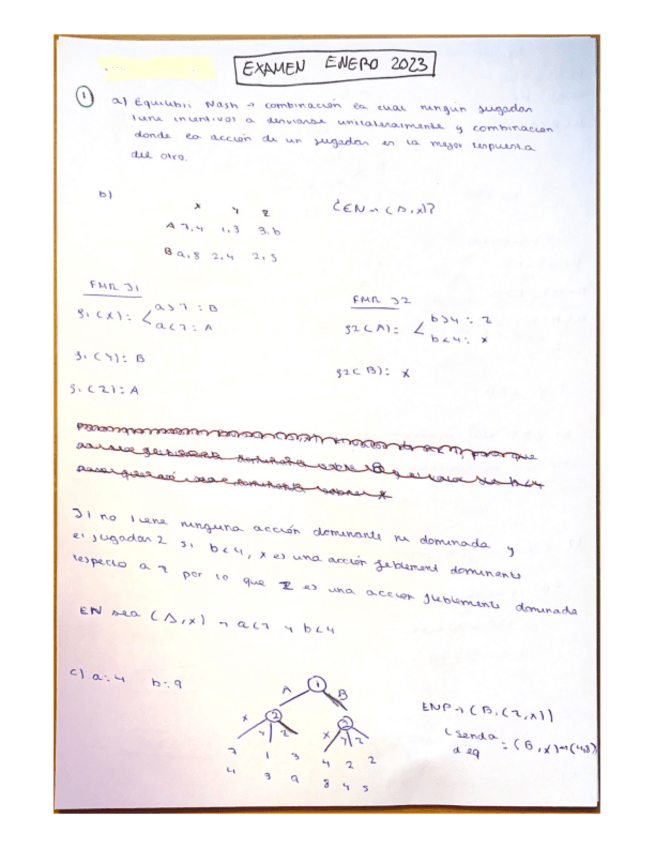 EXAMEN ENERO 2023
1
a) Equilibri Nash → combinación la cual ningún jugador
tiene incentivos a desviarse unilateralmente y combinación
donde la acción de un jugador es la mejor respuesta
del otro.
b)
X Y Z
A 7,4 1,3 3,b
B a,8 2,4 2,5
¿EN → (A,x)?
FMR J1
J1(X): a>7 : B
a<7 : A
J1(Y): B
J1(Z): A
FMR J2
J2(A): b>4 : Z
b<4 : X
J2(B): X
J1 no tiene ninguna acción dominante ni dominada y
el jugador 2 si b<4, x es una acción feblement dominante
respecto a z por lo que Z es una acción feblemente dominada
EN sea (A,x) → a<7 y b<4
c) a:4 b:9
1
A B
2 2
X Y Z X Y Z
7 1 3 4 2 2
4 3 9 8 4 5
ENP → (B,(Z,x))
senda
d eq = (B,x) → (4,8)